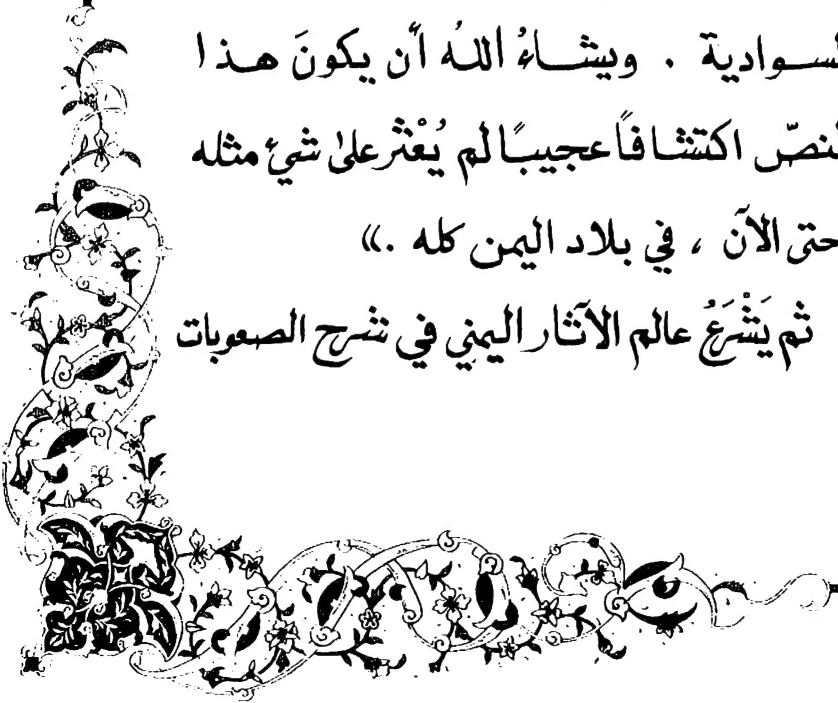 لسوادية . ويشاءُ اللهُ أن يكونَ هذا
لنصّ اكتشافاً عجيبًا لم يُعْثر علىٰ شيءٍ مثله
حتى الآن ، في بلاد اليمن كله .»
ثم يَشْرَعُ عالم الآثار اليمني في شرح الصعوبات